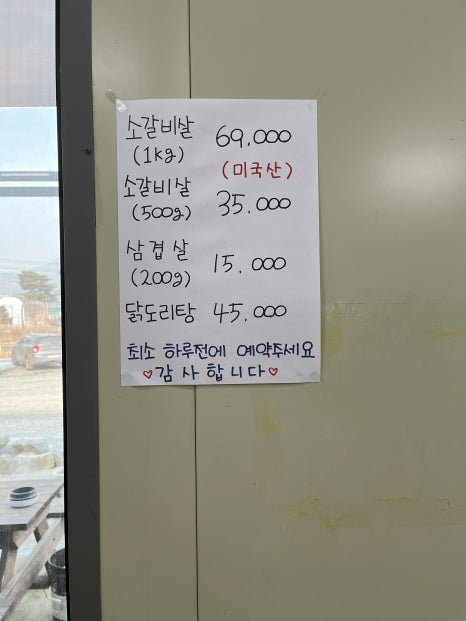 소갈비살 69,000
(1kg) (미국산)
소갈비살 35.000
(500g)
삼겹살 15.000
(200g)
닭도리탕 45.000
최소 하루전에 예약주세요
♡감사합니다♡